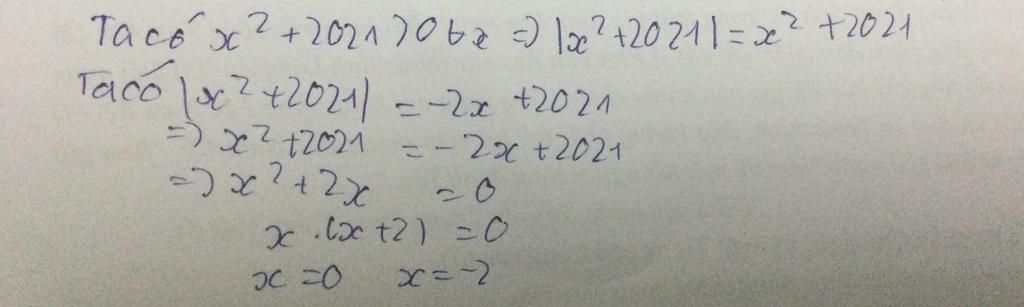 Ta có x² + 2021 > 0 ∀x => |x² + 2021| = x² + 2021
Ta có |x² + 2021| = -2x + 2021
=> x² + 2021 = -2x + 2021
=> x² + 2x = 0
x . (x + 2) = 0
x = 0 x = -2